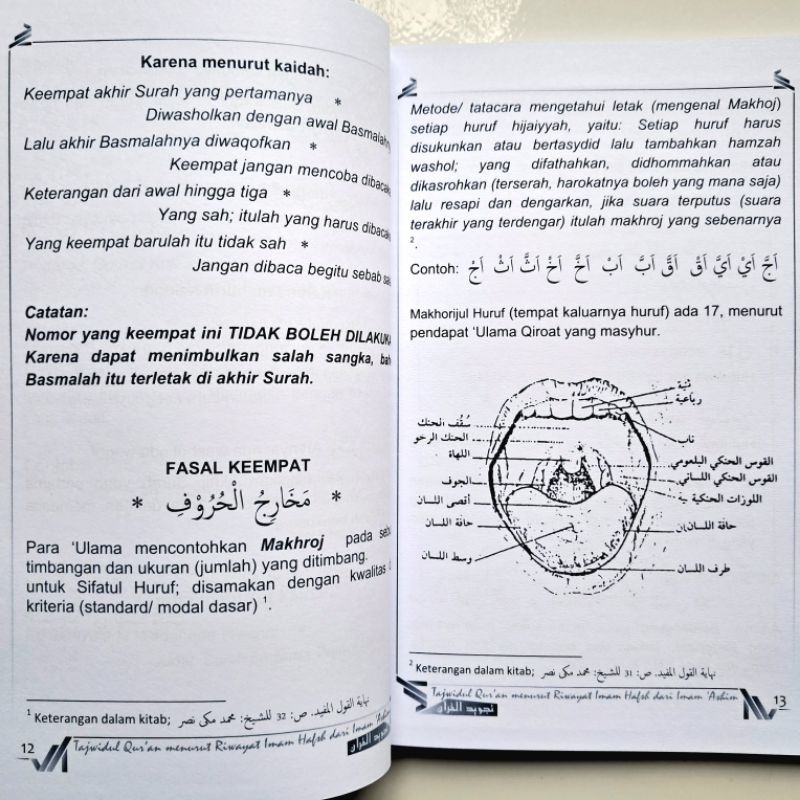 Karena menurut kaidah:
Keempat akhir Surah yang pertamanya *
Diwasholkan dengan awal Basmalahn
Lalu akhir Basmalahnya diwaqofkan *
Keempat jangan mencoba dibaca
Keterangan dari awal hingga tiga *
Yang sah; itulah yang harus dibaca
Yang keempat barulah itu tidak sah *
Jangan dibaca begitu sebab sa
Catatan:
Nomor yang keempat ini TIDAK BOLEH DILAKUKA
Karena dapat menimbulkan salah sangka, bah
Basmalah itu terletak di akhir Surah.
FASAL KEEMPAT
* مَخَارِجُ الْحُرُوْفِ *
Para ‘Ulama mencontohkan Makhroj pada seb
timbangan dan ukuran (jumlah) yang ditimbang.
untuk Sifatul Huruf; disamakan dengan kwalitas
kriteria (standard/ modal dasar) 1.
1 Keterangan dalam kitab; نهاية القول المفيد. ص: 32 للشيخ: محمد مكى نصر
12 Tajwidul Qur'an menurut Riwayat Imam Hafsh dari Imam 'Ashim
تجويد القرآن
Metode/ tatacara mengetahui letak (mengenal Makhoj)
setiap huruf hijaiyyah, yaitu: Setiap huruf harus
disukunkan atau bertasydid lalu tambahkan hamzah
washol; yang difathahkan, didhommahkan atau
dikasrohkan (terserah, harokatnya boleh yang mana saja)
lalu resapi dan dengarkan, jika suara terputus (suara
terakhir yang terdengar) itulah makhroj yang sebenarnya
2.
Contoh: اَجَّ اَيْ اَيَّ اَقْ اَقَّ اَبَّ اَبْ اَخَّ اَخْ اَثَّ اَثْ اَجْ
Makhorijul Huruf (tempat kaluarnya huruf) ada 17, menurut
pendapat ‘Ulama Qiroat yang masyhur.
ثنية
رباعية
سُقُف الحنك
الحنك الرخو
ناب
اللهاة
القوس الحنكي البلعومي
الجوف
القوس الحنكي اللساني
أقصى اللسان
اللوزات الحنكية
حافة اللسان
حافة اللسان
وسط اللسان
طرف اللسان
2 Keterangan dalam kitab; نهاية القول المفيد. ص: 31 للشيخ: محمد مكى نصر
Tajwidul Qur'an menurut Riwayat Imam Hafsh dari Imam 'Ashim 13
تجويد القرآن